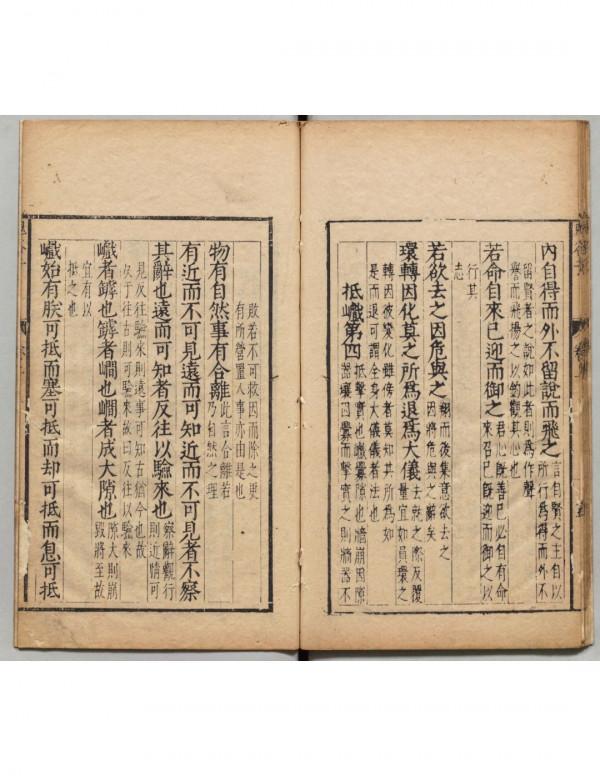 內自得而外不留說而飛之言自賢之主自以所行為得而外不
留賢者之說如此者則為作聲
譽而飛揚之以鈎觀其心也
若命自來已迎而御之君心既善已必自有命來召已既迎而御之以
行其
志
若欲去之因危與之翔而後集意欲去之因將危與之辭矣
環轉因化莫之所為退為大儀去就之際反覆量宜如員環之
轉因彼變化雖傍者莫知其所為如
是而退可謂全身大儀儀者法也
抵巇第四抵擊實也巇釁隙也牆崩因隙器壞因釁而擊實之則牆器不
敗若不可救因而除之更
有所營置人事亦由是也
物有自然事有合離此言合離若乃自然之理
有近而不可見遠而可知近而不可見者不察
其辭也遠而可知者反往以驗來也察辭觀行則近情可
見反往驗來則遠事可知古猶今也故
反于往古則可驗來故曰反往以驗來
巇者罅也罅者㵎也㵎者成大隙也隙大則崩毀將至故
宜有以
抵之也
巇始有朕可抵而塞可抵而却可抵而息可抵